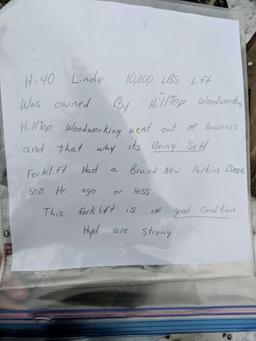 H-40 Linde 10,000 LBS Lift
Was owned By HillTop Woodworking
HillTop Woodworking went out of business
and that why its Being Sold
Forklift Had a Brand New Perkins Diesel
500 Hr ago or less
This forklift is in good Condition
Hyd are strong